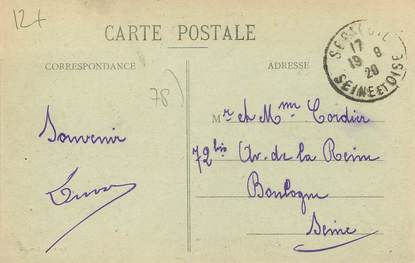 12+
CARTE POSTALE
CORRESPONDANCE
ADRESSE
17
19 8
20
SEINE ET OISE
78)
Souvenir
Mr et Mme Cordier
72 bis Av. de la Reine
Boulogne
Seine